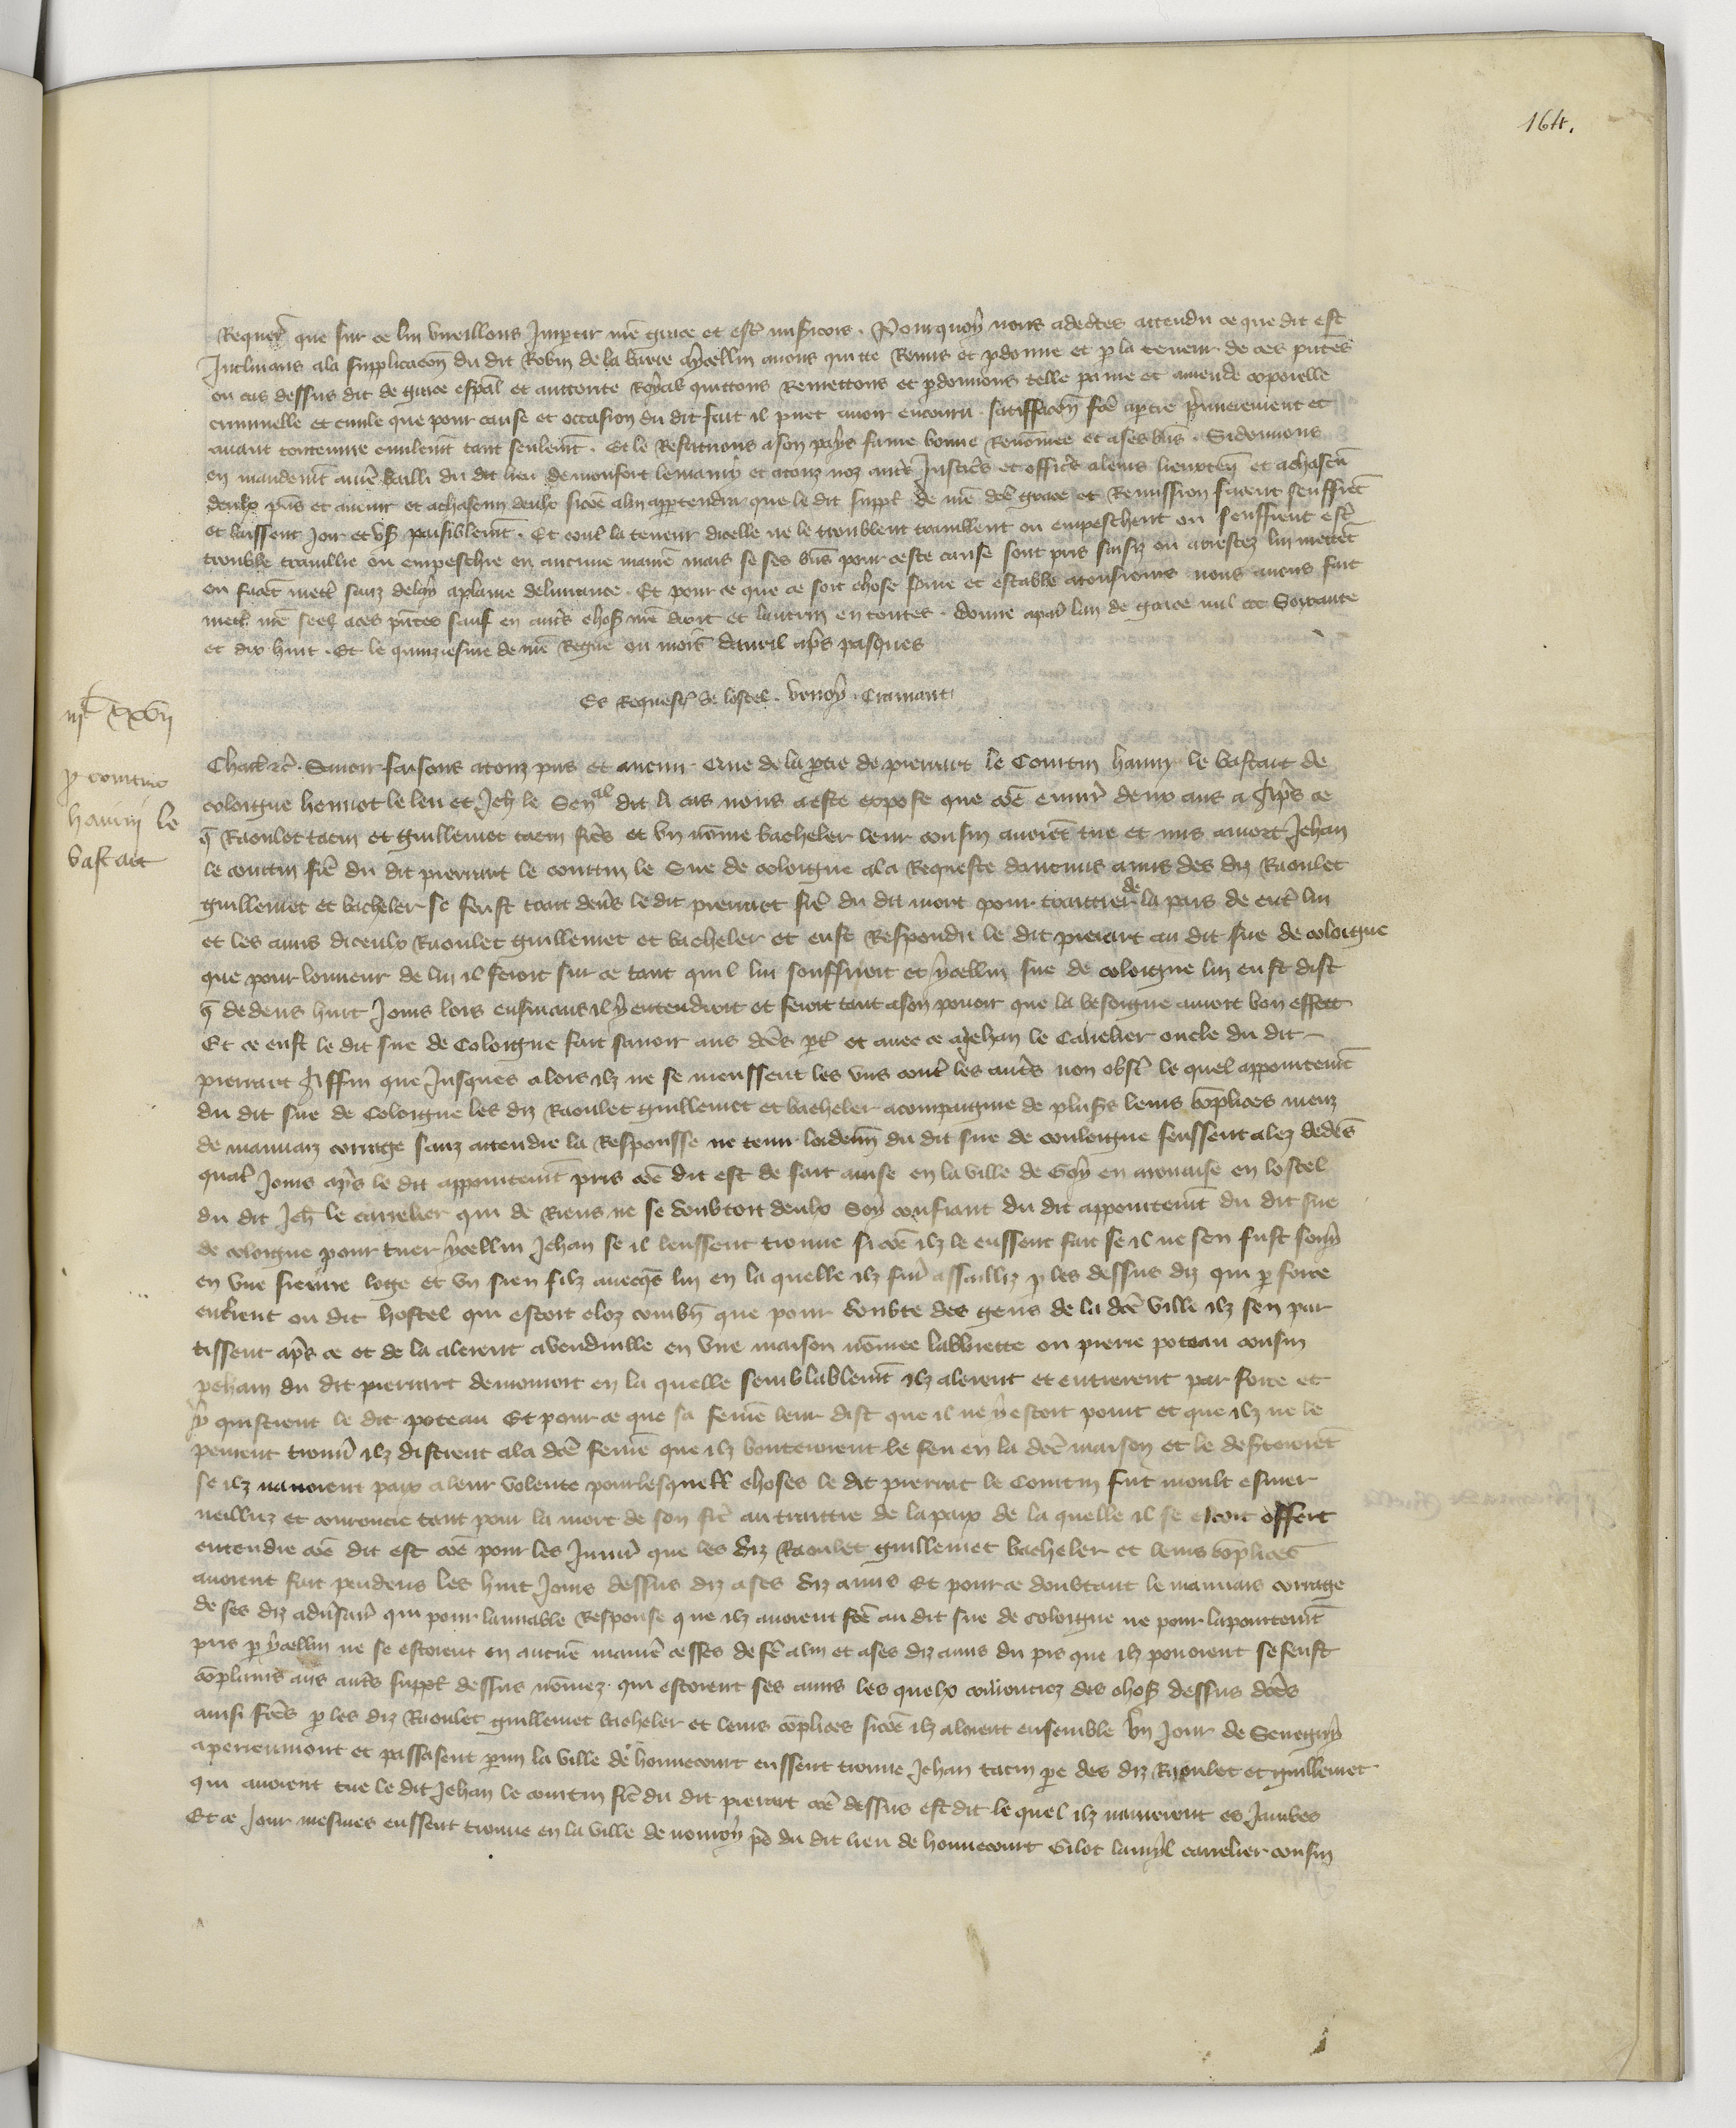 164.
Requer̃ que sur ce lui vueillons impartir nr̃e grace et estr̃ misericors. Pourquoy nous adecertes attendu ce que dit est
Inclinans ala supplicacon̄ du dit Robin de la biree aycellui auons quitte Remis et pdonne et p la teneur de ces pntes
ou cas dessus dit de grace espal̃ et auctorite Royal quittons Remettons et pdonnons telle paine et amende corporelle
criminelle et ciuile que pour cause et occasion du dit fait il puet auoir encouru. satiffacon̄ fc̃e aptie premierement et
auant toutenue ciuilemt̃ tant seulemt̃. Et le Restituons a son pays fame bonne Renõmee et a ses biẽs. Si donnons
en mandemt̃ au bailli du dit lieu de monfort lemaury et atouz noz autr̃s Justic̃s et offic̃s aleurs lieuxten̄ et achascũ
deulx pñs et auenir et achascun deulx sicõe alui appartendra que le dit suppl̃ de nr̃e dc̃e grace et Remission facent seuffrẽt
et laissent joir et vs̃ paisiblemt̃. Et contr̃ la teneur dicelle ne le troublent trauillent ou empeschent ou seuffrent estr̃
trouble trauillie ou empeschie en aucune maniẽ mais se ses biẽs pour ceste cause sont pris saisiz ou arrestez lui mettẽt
ou facẽt mettr̃ sanz delay aplaine deliurance. Et pour ce que ce soit chose ferme et estable atousiours nous auons fait
mettr̃ nr̃e seel aces pñtes sauf en autr̃s chos̃ nr̃e droit et lautrui en toutes. donne apar̃ lan de grace mil ccc Soixante
et dix huit. Et le quinziesme de nr̃e Regne ou mois dauril apr̃s pasques
Es Requestes de lostel. vernoy. Cramant
iijc xxvij
p courtin
hanin le
bastart
Charles etc̃. Sauoir faisons atouz pñs et auenir Que de la ptie de pierrart le Courtin hanin le bastart de
coloigne henriot le leu et Jeh̃ le Senal dit li cas nous a este expose que cõe enuir̃ deux ans a Apr̃s ce
q̃ Raoulet tacin et guillemet tacin fr̃es et vn nõme bacheler leur cousin auoiẽt tue et mis amort Jehan
le courtin fr̃e du dit pierrart le courtin le Sire de coloigne ala Requeste daucuns amis des diz Raoulet
guillemet et bacheler se feust trait deu̾s le dit pierrart fr̃e du dit mort pour traittier de la pais de entr̃ lui
et les amis diceulx Raoulet guillemet et bacheler et eust Respondu le dit pierart au dit sire de coloigne
que pour lonneur de lui il feroit sur ce tant quil lui souffiroit et ycellui sire de coloigne lui eust dist
q̃ dedens huit Jours lors ensuians il y entendroit et feroit tant ason pouoir que la besoigne auroit bon effect
Et ce eust le dit sire de Coloigne fait sauoir aus dc̃es pt̃ et auec ce a Jehan le Carrelier oncle du dit
pierrart Affin que Jusques alors ilz ne se meussent les vns contr̃ les autr̃s non obst̃ le quel appointemt̃
du dit sire de Coloigne les diz Raoulet guillemet et bacheler acompaigne de plus̃s leurs cõplices meuz
de mauuaiz corrage sanz attendre la Responsse ne tenir lordenãn du dit sire de couloigne feussent alez dedẽs
quatr̃ Jours apr̃s le dit appointemt̃ pris cõe dit est de fait auise en la ville de Goy en arouaise en lostel
du dit Jeh̃ le carrelier qui de Riens ne se doubtoit deulx Soy confiant du dit appointemt̃ du dit sire
de coloigne pour tuer ycellui Jehan se il leussent trouue si cõe ilz le eussent fait se il ne sen fust fouy
en vne sienne loge et vn sien filz auecq̃s lui en la quelle ilz fur̃ assailliz p les dessus diz qui p force
entrẽrent ou dit hostel qui estoit cloz combñ que pour doubte des gens de la dc̃e ville ilz sen par
tissent apr̃s ce et de la alerent auenduille en vne maison nõmee labbiette ou pierre poteau cousin
du dit pierrart demouroit en la quelle semblablemt̃ ilz alerent et entrerent par force et
y quistrent le dit poteau Et pour ce que sa femẽ leur dist que il ne y estoit point et que ilz ne le
peurent trouu̾ ilz distrent ala dc̃e femẽ que ilz bouteroient le feu en la dc̃e maison et le destruiroiẽt
se ilz nauoient paix a leur volente pourlesquell̃ choses le dit pierrat le Courtin fut moult esmer
ueilliez et courroucie tant pour la mort de son fr̃e au traittie de la paix de la quelle il se estoit offert
entendre cõe dit est cõe pour les Iniur̃ que les diz Raoulet guillemet bacheler et leurs cõplices
auoient fait pendens les huit Jours dessus diz a ses diz amis Et pour ce doubtant le mauuais corrage
de ses diz adu̾sair̃ qui pour lamiable Response que ilz auoient fc̃e au dit sire de coloigne ne pour lapointemt̃
pris p ycellui ne se estoient en aucuẽ maniẽ cesses de fẽ alui et a ses diz amis du pis que ilz pouoient se feust
cõplains aus autr̃s suppl̃ dessus nõmez qui estoient ses amis les quelx courrouciez des chos̃ dessus dc̃es
ainsi fc̃es p les diz Raoulet guillemet bacheler et leurs cõplices sicõe ilz aloient ensemble vn Jour de Serreguy
apierremont et passasent pmi la ville de honnecourt eussent trouue Jehan tacin pe des diz Raoulet et guillemet
qui auoient tue le dit Jehan le courtin fr̃e du dit pierart cõe dessus est dit le quel ilz naurerent es Jambes
Et ce Jour mesmes eussent trouue en la ville de nouroy pr̃s du dit lieu de honnecourt Gilot carrelier cousin